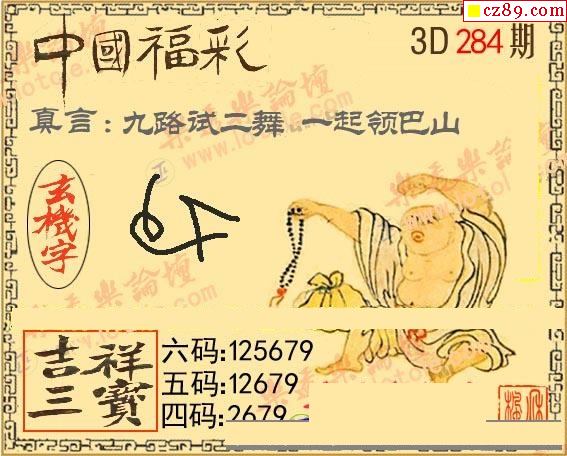 cz89.com
中國福彩
3D 284 期
真言:九路试二舞 一起领巴山
玄機字
吉祥三寶
六码:125679
五码:12679
四码:2679